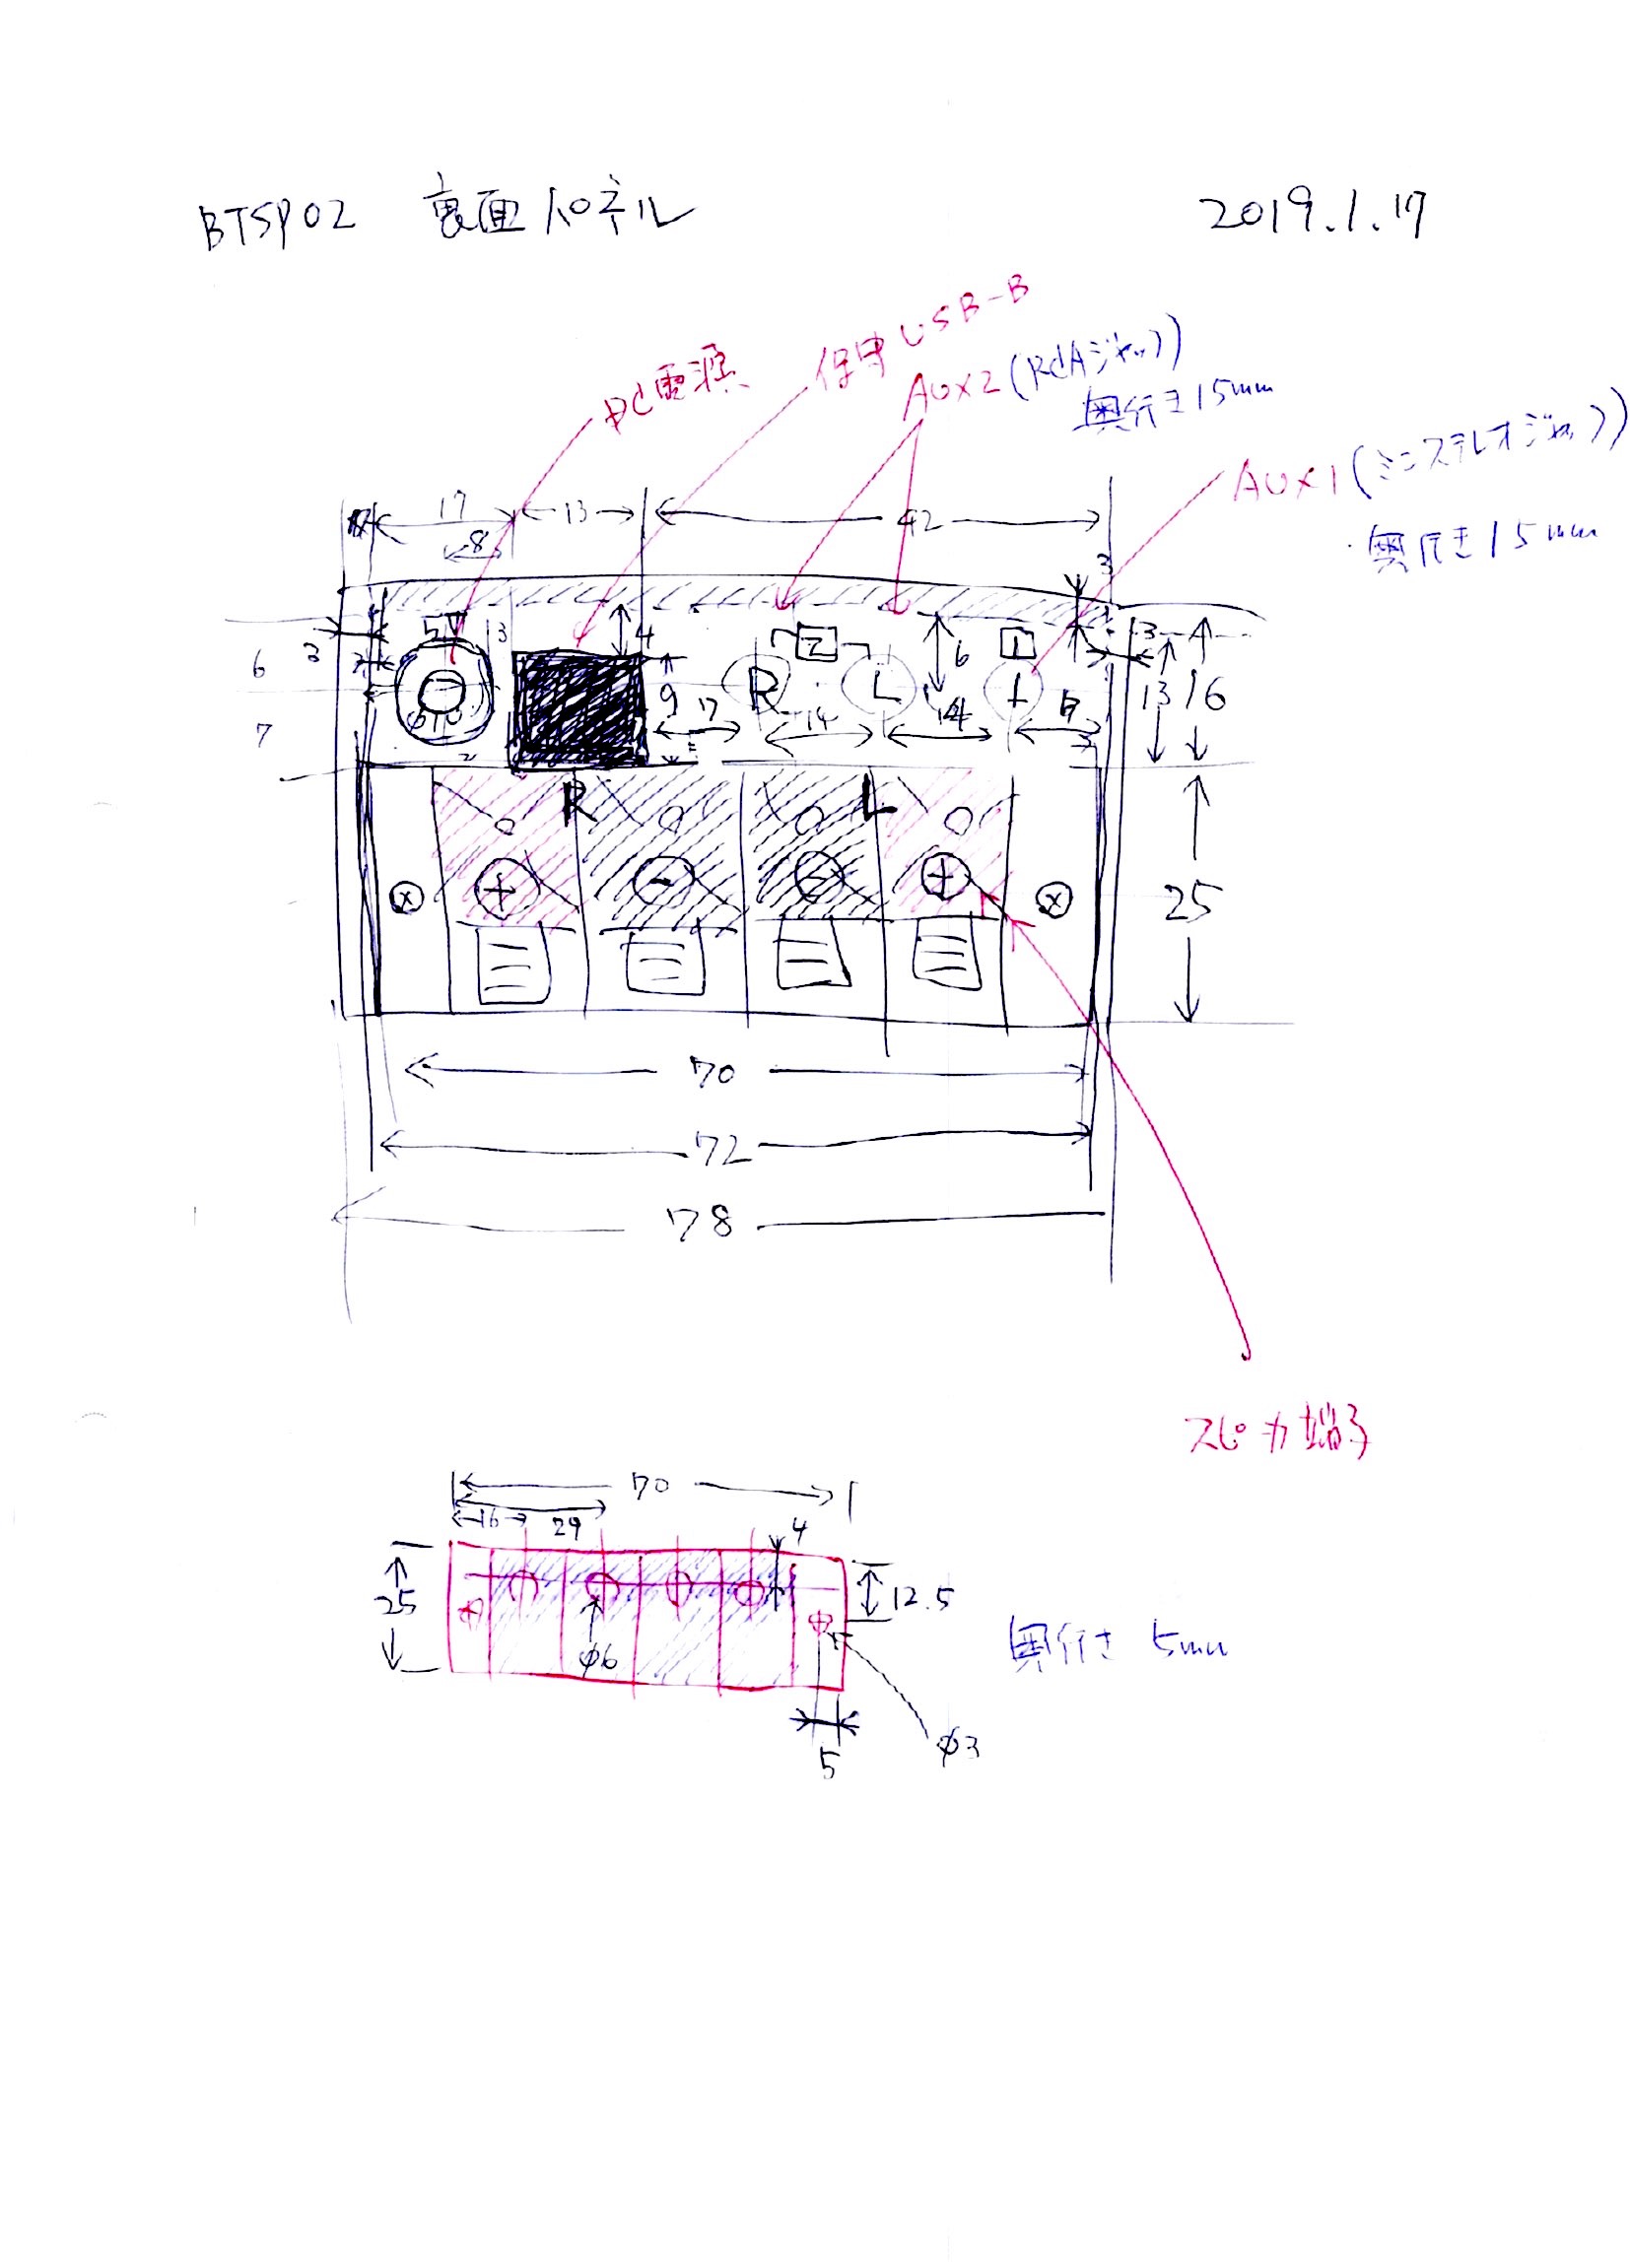 BTSP02 裏面パネル 2019.1.17
DC電源
保守USB-B
AUX2(RCAジャック)
奥行き15mm
AUX1(ミニステレオジャック)
奥行き15mm
17
13
42
8
3
5V
3
4
2
6
1
3
13
16
6
3
7
φ10
9
R
L
1
7
14
14
7
R
L
+
-
-
+
25
70
72
78
スピーカ端子
70
16
29
4
25
12.5
φ6
奥行き 5mm
5
φ3